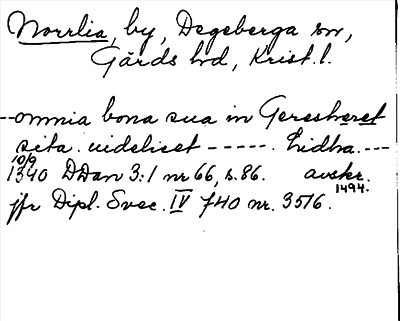 Norrlia, by, Degeberga sn,
Gärds hd, Krist. l.
--omnia bona sua in Geresheret
sita. uidelicet ------ Lidha.---
10/9
1340 DDan 3:1 nr 66, s. 86. avskr.
1494.
jfr Dipl. Svec. IV 740 nr. 3516.